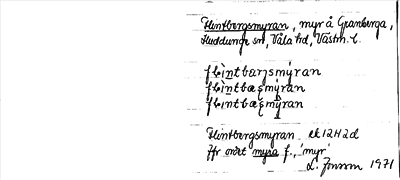 Flintbergsmyran, myr å Granberga,
Huddunge sn, Våla hd, Västm. l.
flìntbarjsmýran
flìntbæ mýran
flìntbæ mýran
Flintbergsmyran ek 12H2d
Jfr ordet myra f., 'myr'
L. Jonsson 1971